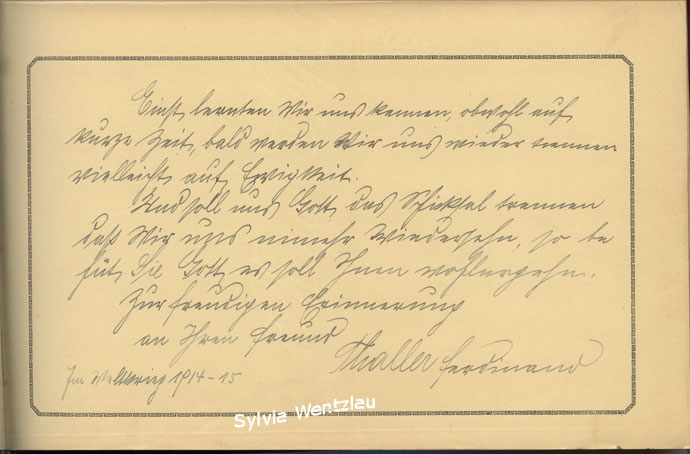 Einst lernten Wir uns kennen, obwohl auf
kurze Zeit, bald werden Wir uns wieder trennen
vielleicht auf Ewigkeit.
Und soll uns Gott das Schicksal trennen
daß Wir uns nimehr Wiedersehn, so be
hüt Sie Gott es soll Ihnen wohlergehn.
Zur freudigen Erinnerung
an Ihren Freund
Thaller Ferdinand
Im Weltkrieg 1914-15
Sylvia Wentzlau